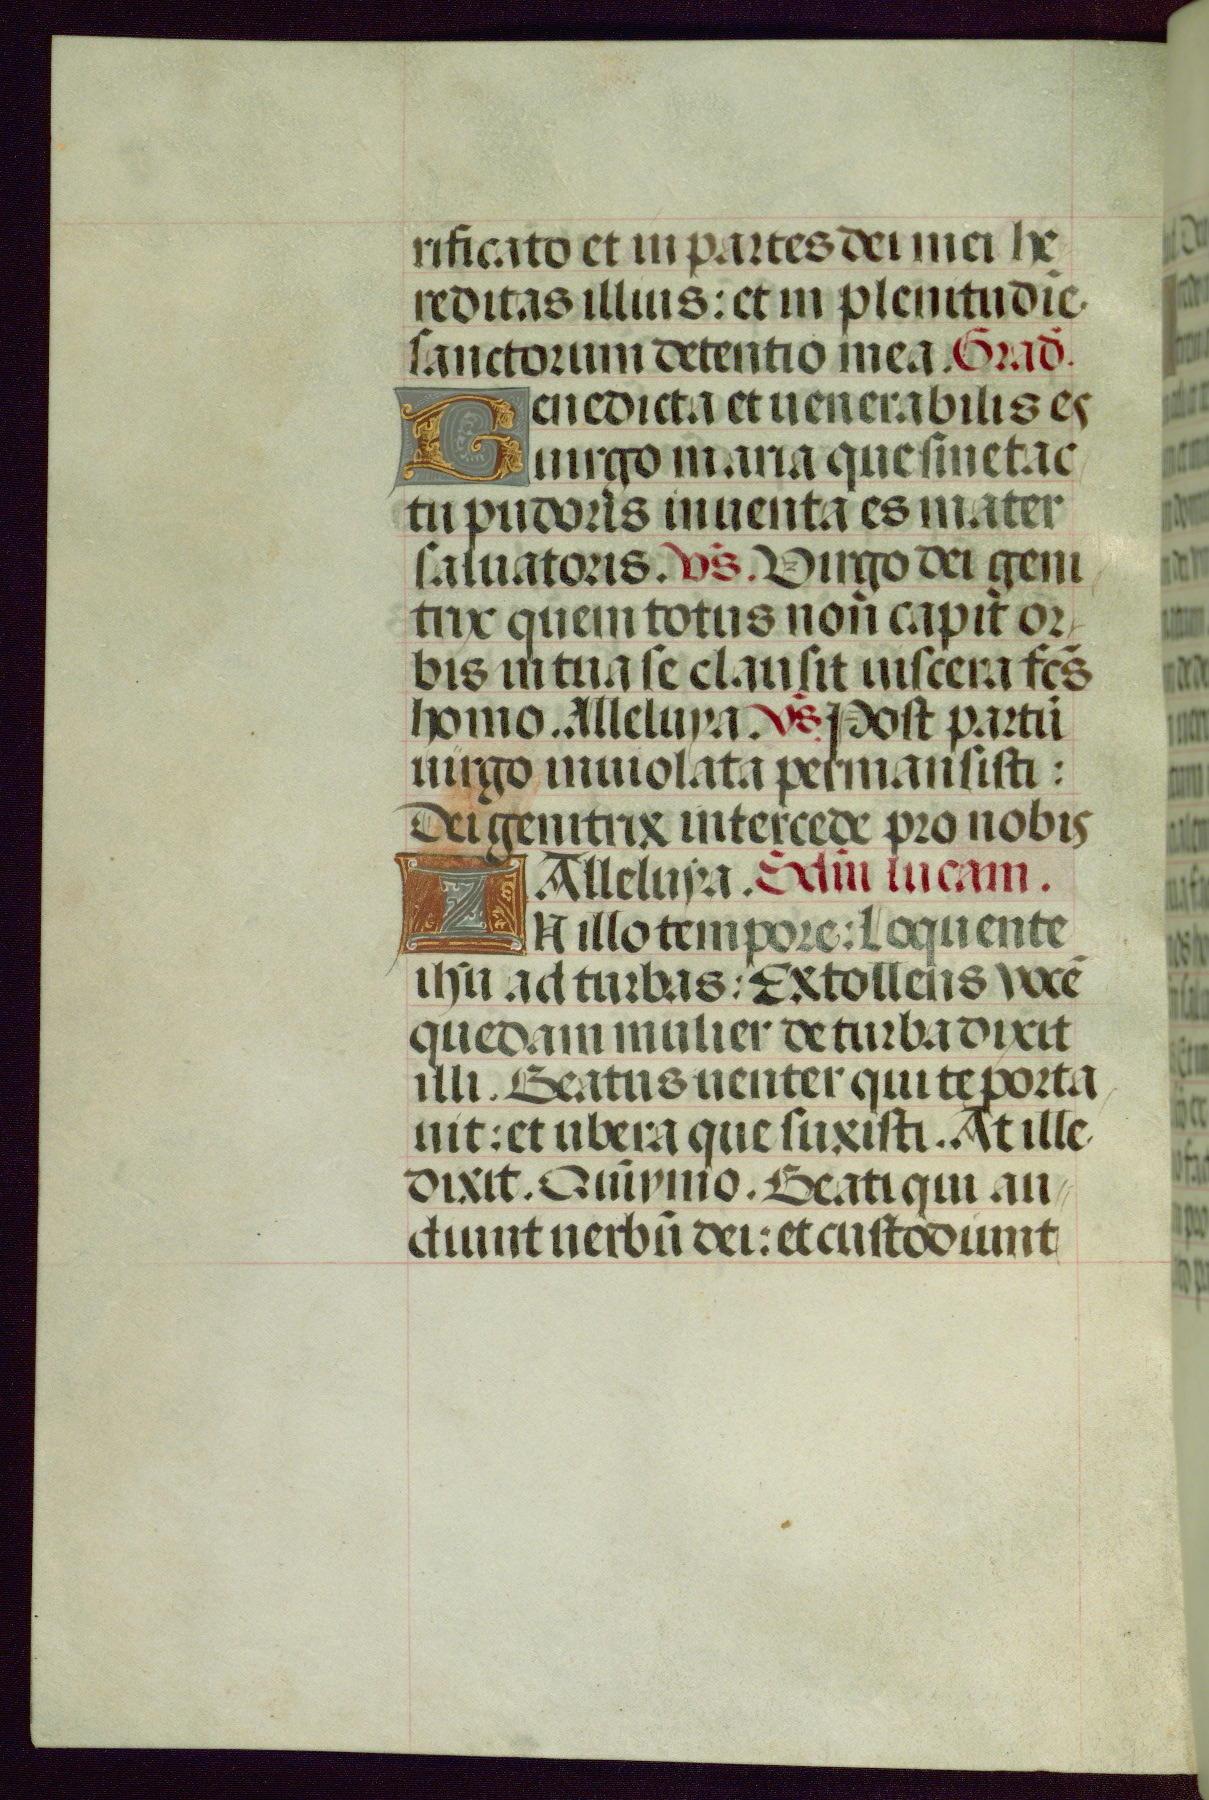 rificato et in partes dei mei he
reditas illius: et in plenitudīe
sanctorum detentio mea. Grad̄.
Benedicta et uenerabilis es
uirgo maria que sine tac
tu pudoris inuenta es mater
saluatoris. v̄s. Virgo dei geni
trix quem totus non̄ capit or
bis in tua se clausit uiscera fc̄s
homo. Alleluya. v̄s. Post partū
uirgo inuiolata permansisti:
Dei genitrix intercede pro nobis
Alleluya. Scdm̄ lucam.
IN illo tempore: Loquente
ihū ad turbas: Extollens vocē
quedam mulier de turba dixit
illi. Beatus uenter qui te porta
uit: et ubera que suxisti. At ille
dixit. Quīymo. Beati qui au
diunt uerbū dei: et custodiunt